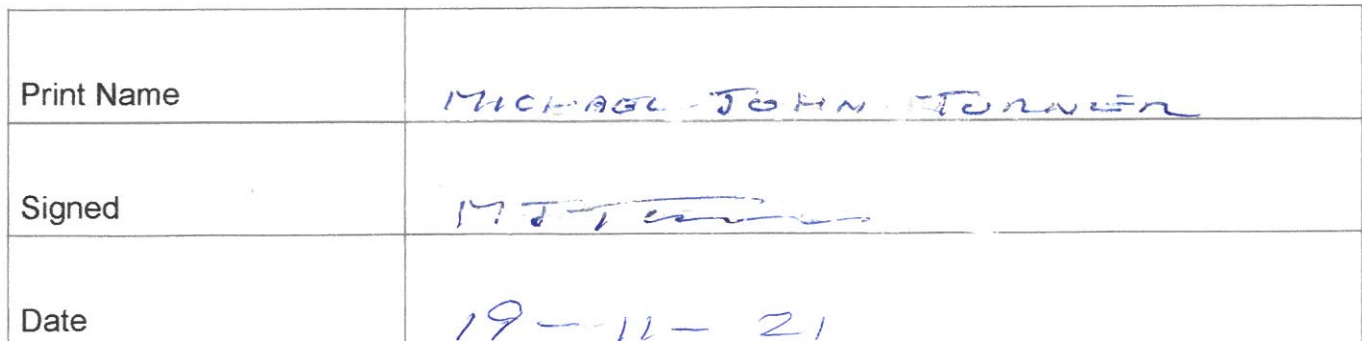 Print Name MICHAEL JOHN TURNER
Signed MJT
Date 19-11-21